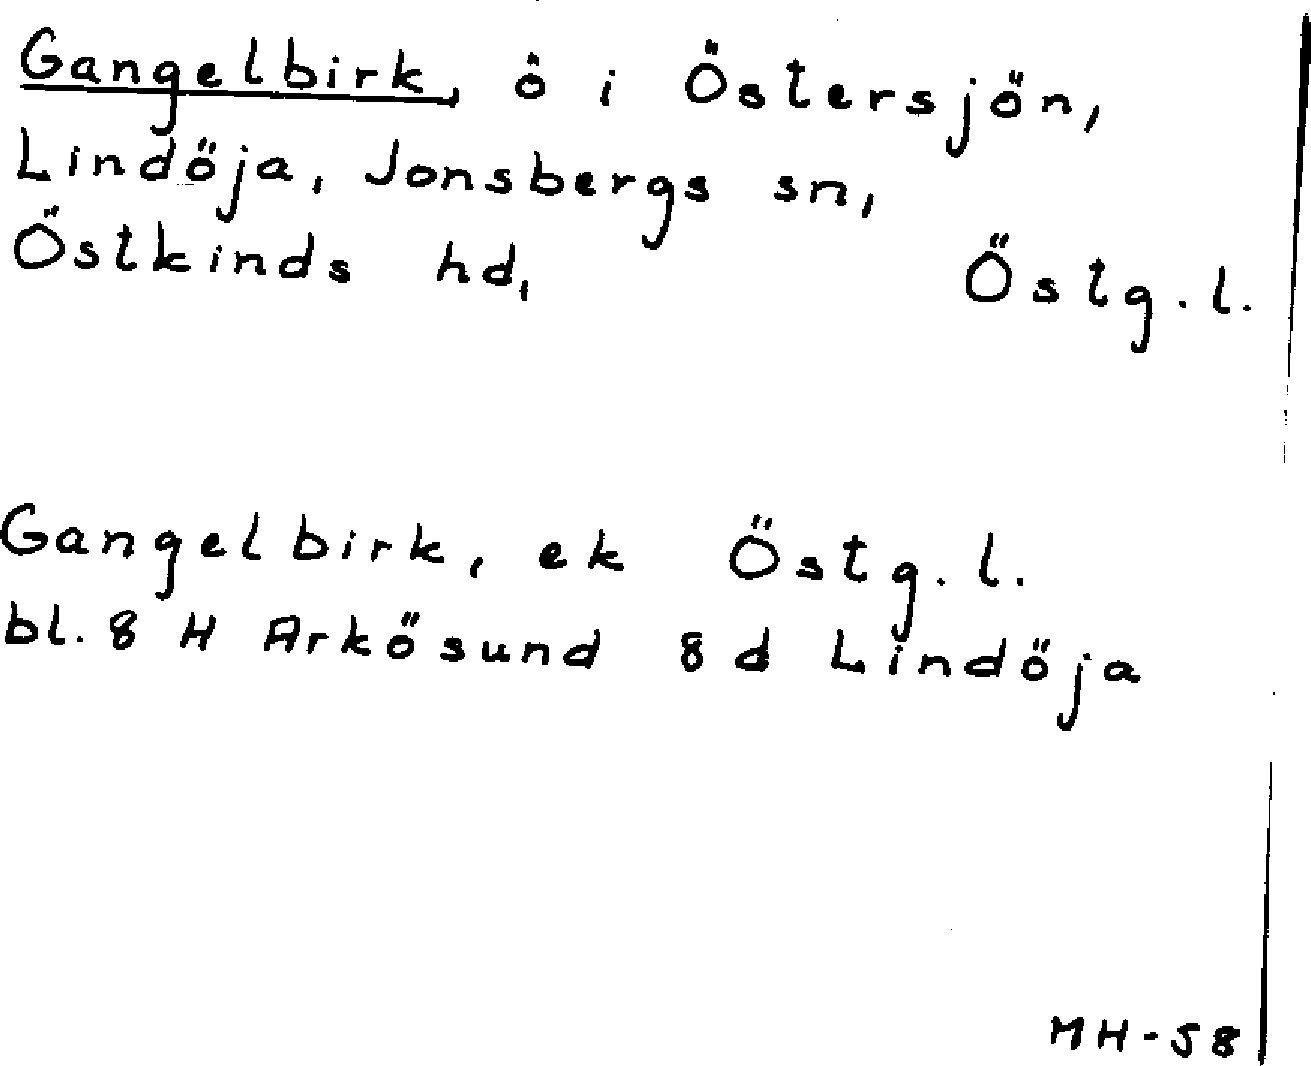 Gangelbirk, ö i Östersjön,
Lindöja, Jonsbergs sn,
Östkinds hd, Östg.l.
Gangelbirk, ek Östg.l.
bl. 8 H Arkösund 8 d Lindöja
MH-58